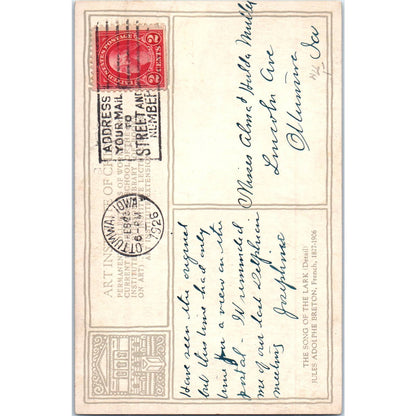 UNITED STATES POSTAGE
2 CENTS 2
ADDRESS
YOUR MAIL
TO
STREET AND
NUMBER
OTTUMWA, IOWA
FEB 23
6-PM
1926
ART INSTITUTE OF CHI
PERMANENT
CURRENT
INSTITUTE
ON ART
Misses Alma & Hulda Muller
Lincoln Ave
Ottumwa
Ia
Have seen the original
but this time had only
time for a view on the
postal - It reminded
me of our last Delphian
meeting
Josephine
THE SONG OF THE LARK (Detail)
JULES ADOLPHE BRETON, French, 1827-1906